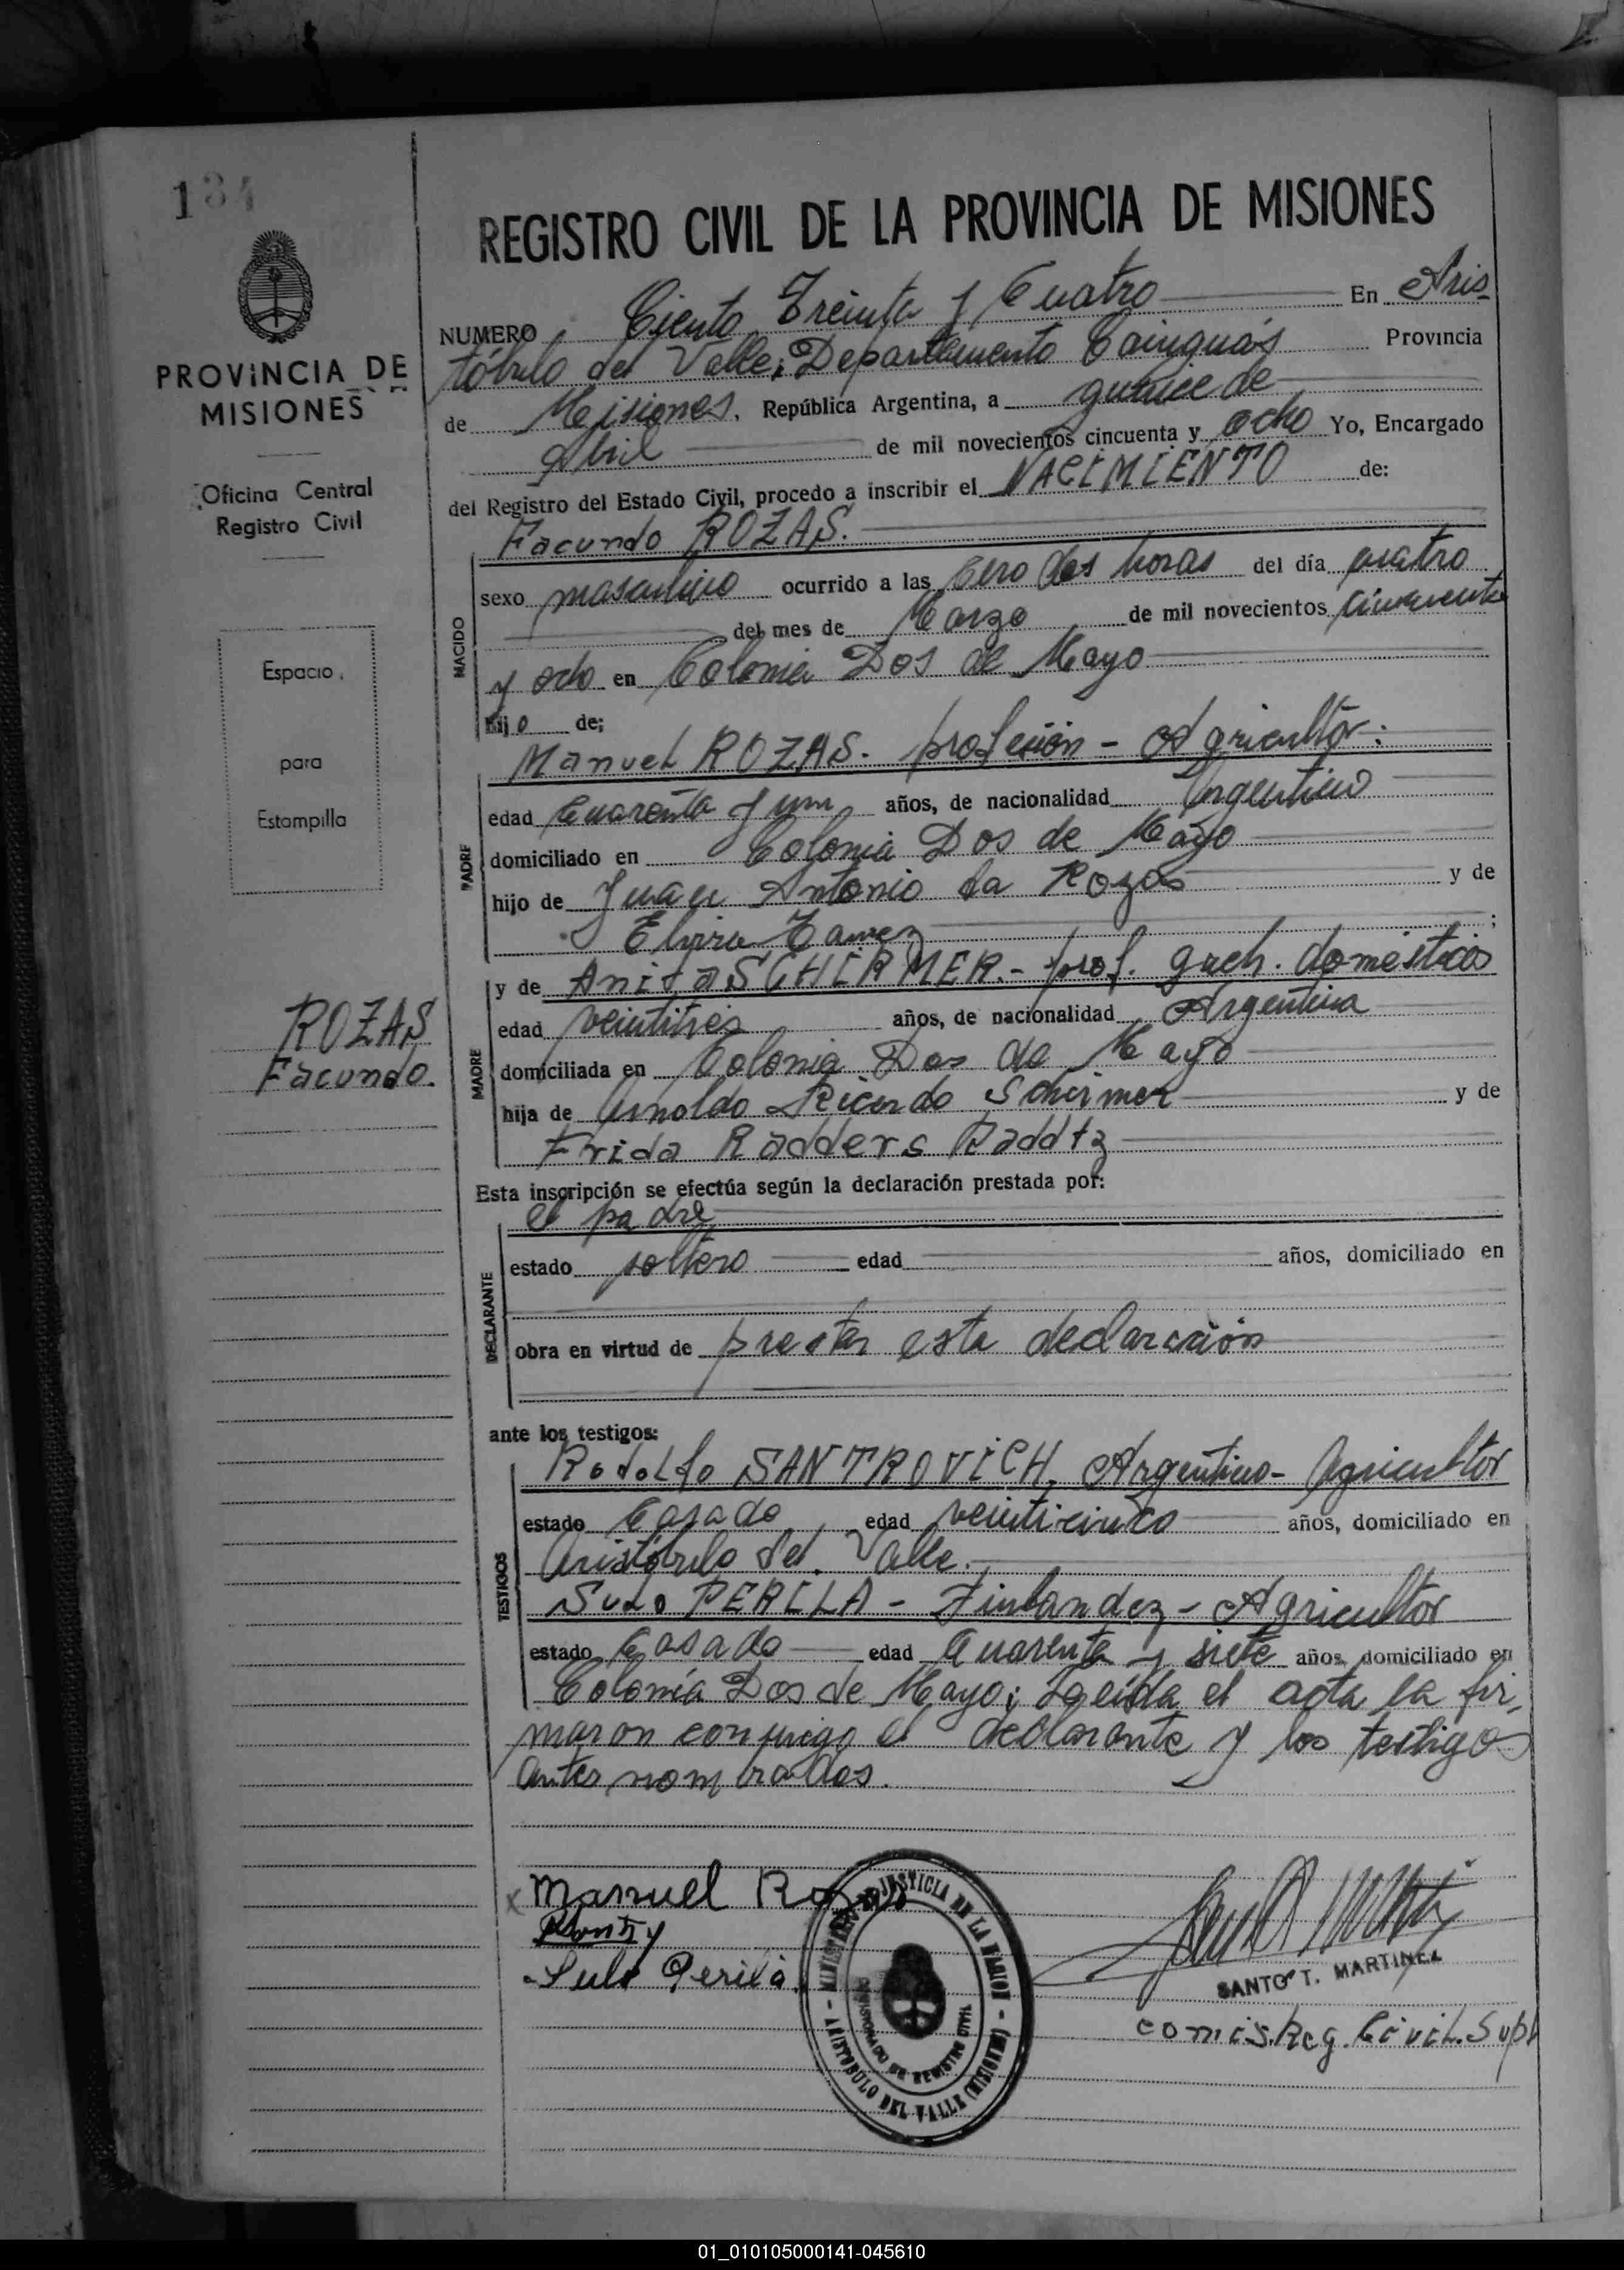 134
PROVINCIA DE
MISIONES
Oficina Central
Registro Civil
Espacio
para
Estampilla
ROZAS
Facundo.
REGISTRO CIVIL DE LA PROVINCIA DE MISIONES
NUMERO Ciento Treinta y Cuatro En Aris-
tóbulo del Valle, Departamento Cainguás Provincia
de Misiones, República Argentina, a quince de
Abril de mil novecientos cincuenta y ocho Yo, Encargado
del Registro del Estado Civil, procedo a inscribir el NACIMIENTO de:
Facundo ROZAS.
NACIDO
sexo masculino ocurrido a las cero dos horas del día cuatro
del mes de Marzo de mil novecientos cincuenta
y ocho en Colonia Dos de Mayo
hijo de:
Manuel ROZAS. profesión - Agricultor.
PADRE
edad Cuarenta y un años, de nacionalidad Argentino
domiciliado en Colonia Dos de Mayo
hijo de Juan Antonio da Rozas y de
Elvira ;
y de Anita SCHIRMER.- prof. queh. domésticos
MADRE
edad veintitrés años, de nacionalidad Argentina
domiciliada en Colonia Dos de Mayo
hija de Arnoldo Ricardo Schirmer y de
Frida Radders Raddtz
Esta inscripción se efectúa según la declaración prestada por:
el padre
DECLARANTE
estado soltero edad años, domiciliado en
obra en virtud de prestar esta declaración
ante los testigos:
Rodolfo SANTROVICH, Argentino- Agricultor
TESTIGOS
estado Casado edad veinticinco años, domiciliado en
Aristóbulo del Valle.
Sulo PERILA - Finlandez - Agricultor
estado Casado edad Cuarenta y siete años domiciliado en
Colonia Dos de Mayo; Leída el acta la fir,
maron conmigo el declarante y los testigos
antes nombrados.
x Manuel Rozas
Sulo Perila
MINISTERIO DE JUSTICIA DE LA NACION
- ARISTOBULO DEL VALLE (MISIONES) -
COMISIONADO DE REGISTRO CIVIL
SANTO T. MARTINEZ
comis. Reg. Civil. Supl
01_010105000141-045610